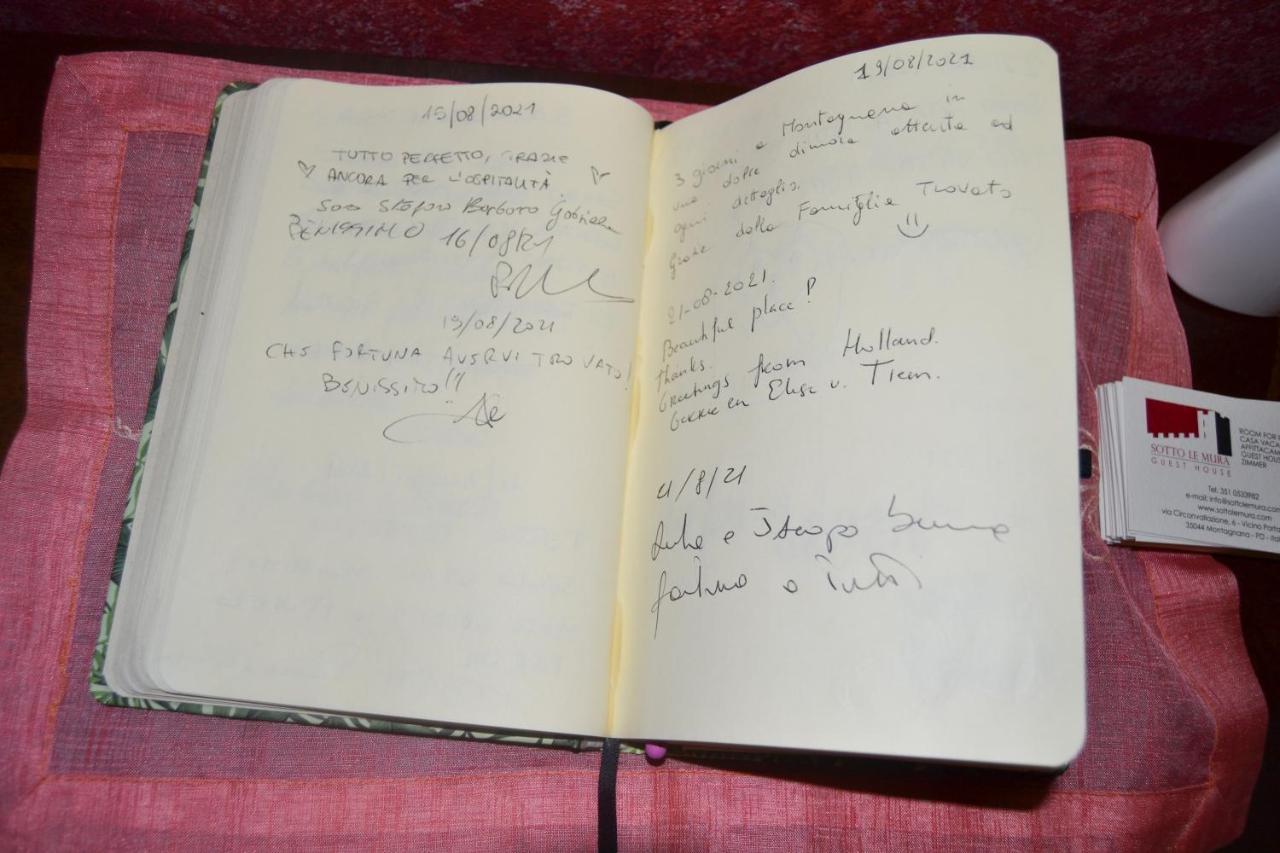 15/08/2021
TUTTO PERFETTO, GRAZIE
ANCORA PER L'OSPITALITÀ
Stefano Barbara Gabriele
BENISSIMO 16/08/21
19/08/2021
CHE FORTUNA AVERVI TROVATO!
BENISSIMO!!
19/08/2021
3 giorni a Montagnana in
una dolce dimora attenta ad
ogni dettaglio.
Grazie dalla Famiglia Trovato
21-08-2021.
Beautiful place!
thanks.
Greetings from Holland.
en Elise v. Tieen.
21/8/21
e buona
fortuna a tutti
SOTTO LE MURA
GUEST HOUSE
ROOM FOR
CASA VACA
AFFITTACAM
GUEST HOUS
ZIMMER
Tel. 351 0533982
e-mail: info@sottolemura.com
www.sottolemura.com
via Circonvallazione, 6 - Vicino Por
35044 Montagnana - PD - Ital